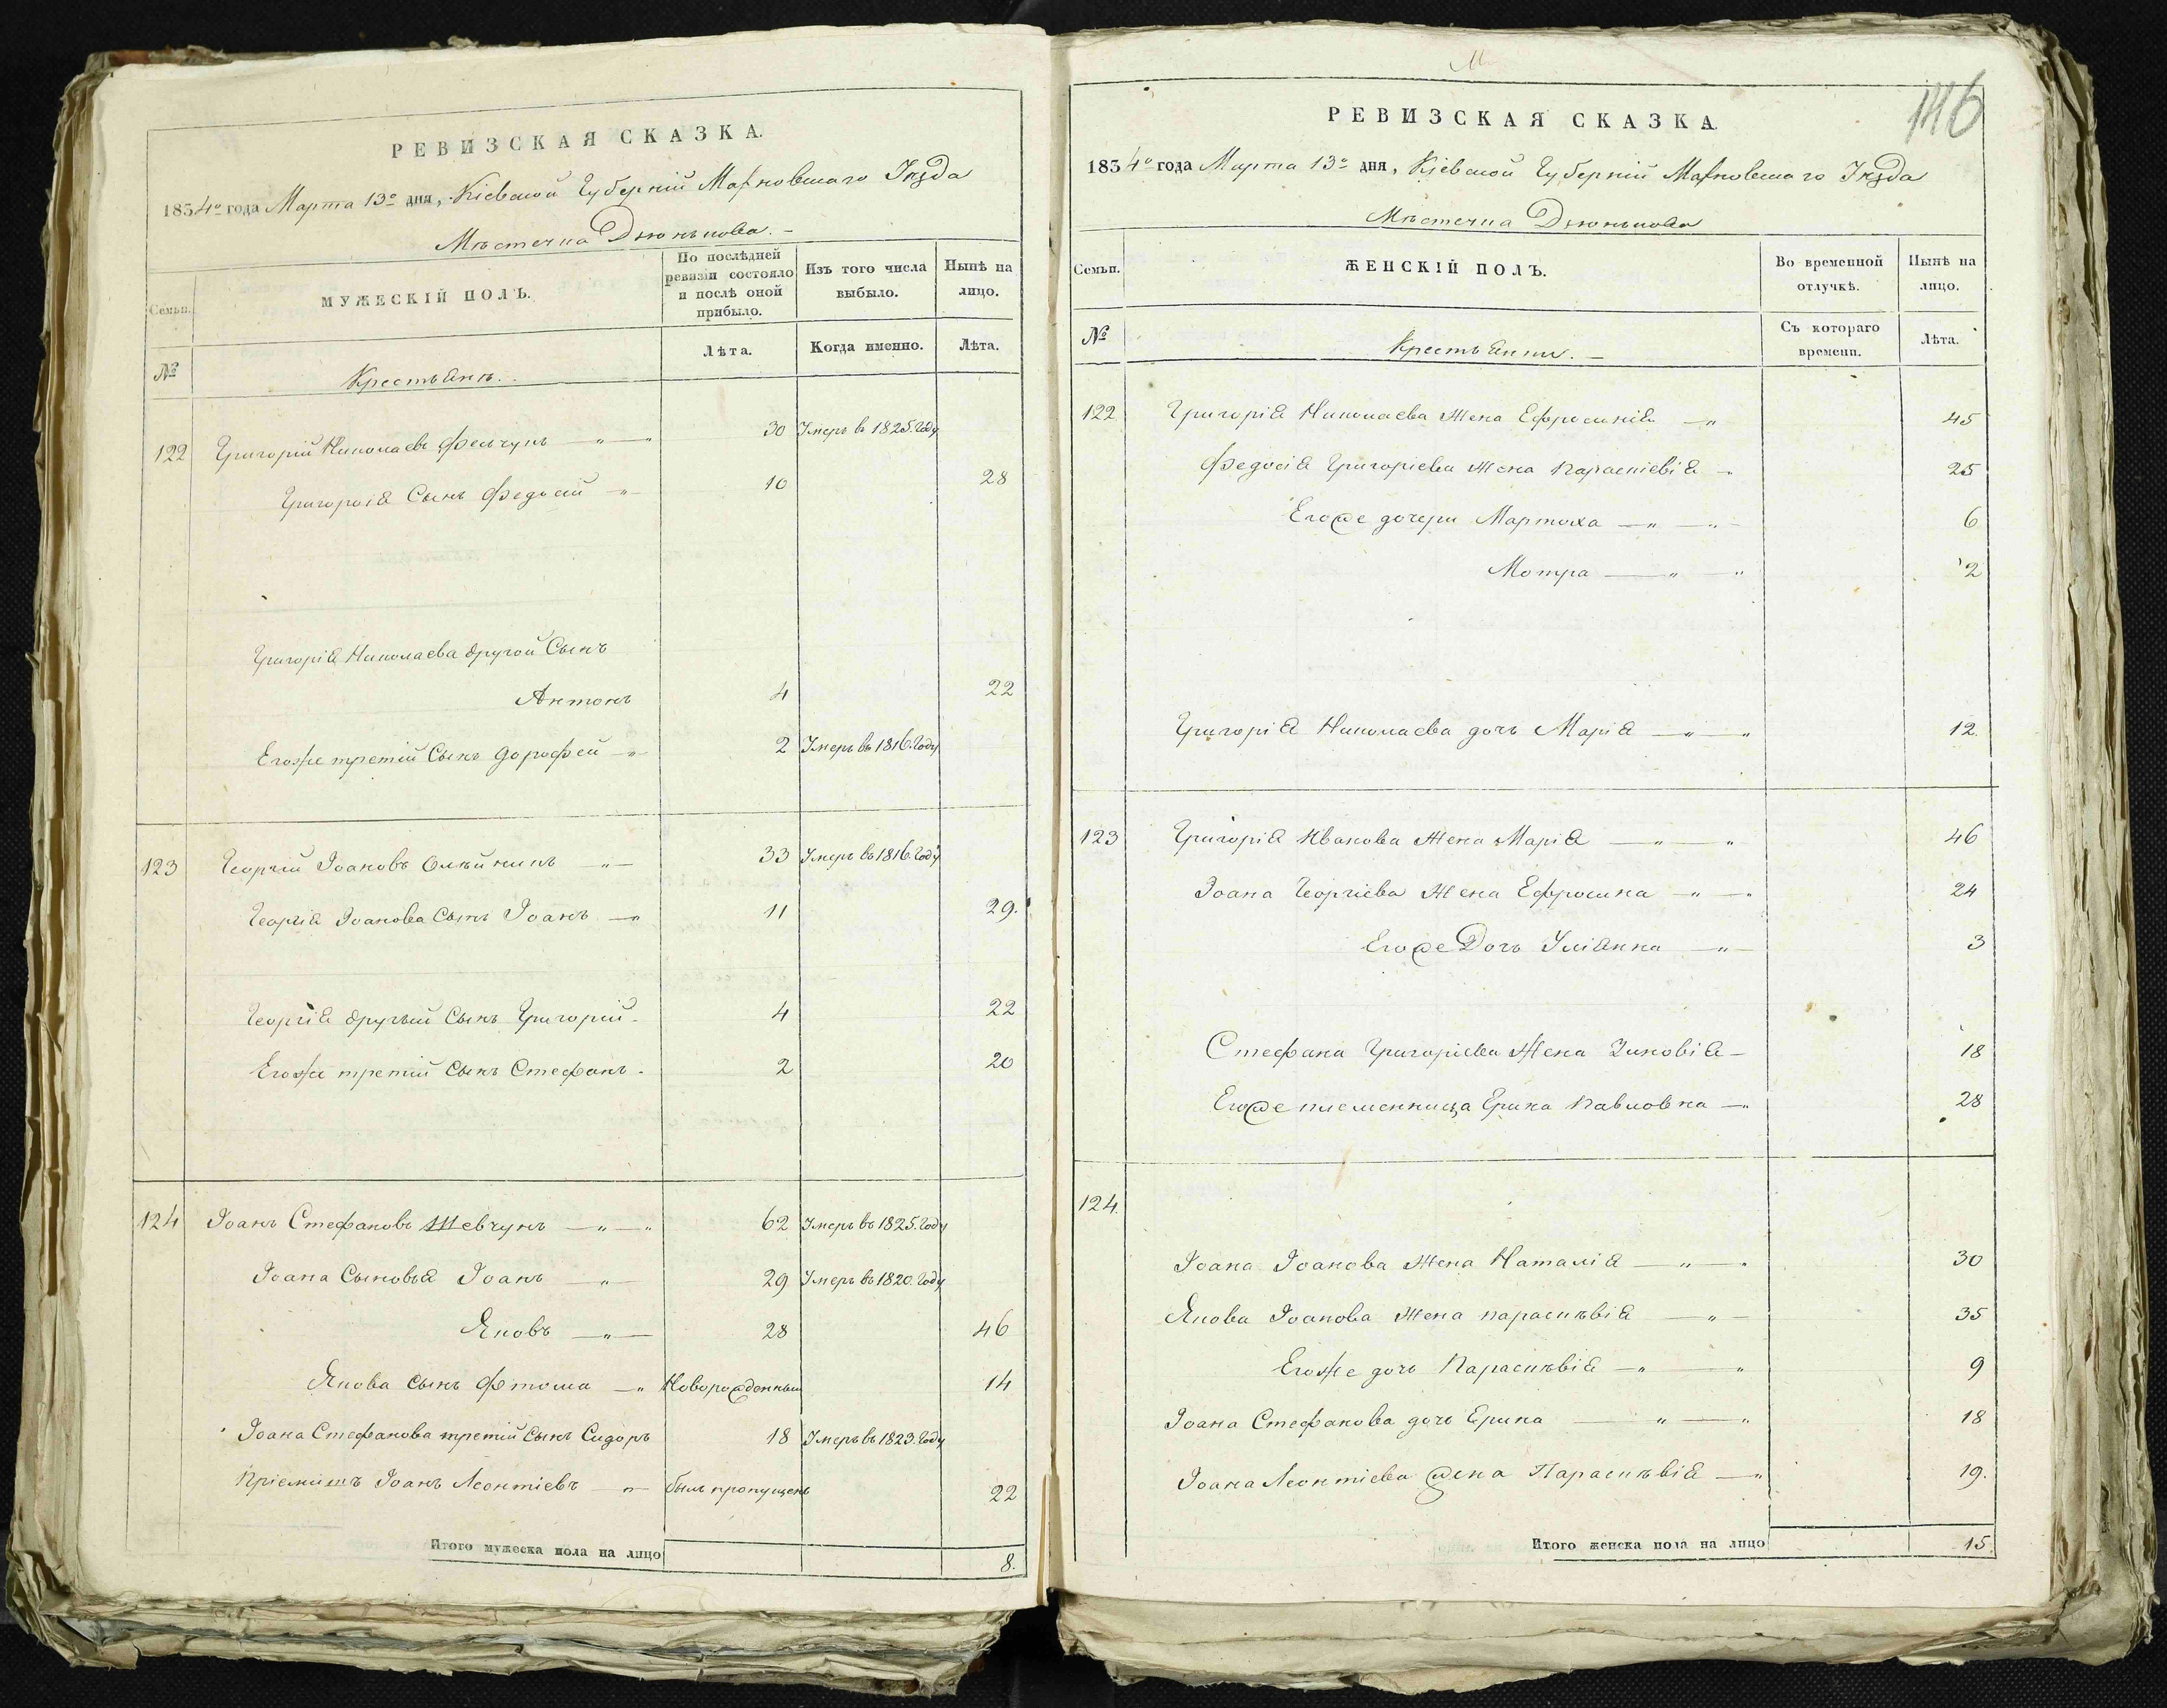 РЕВИЗСКАЯ СКАЗКА.
1834го года Марта 13го дня, Кіевской Губерніи Махновскаго Уѣзда
Мѣстечка Дзюнькова. —
Семьи.
МУЖЕСКІЙ ПОЛЪ.
По послѣдней ревизіи состояло и послѣ оной прибыло.
Изъ того числа выбыло.
Нынѣ на лицо.
№
Крестьянъ.
Лѣта.
Когда именно.
Лѣта.
122 Григорій Николаевъ 30 Умеръ въ 1825. Году
Григорія Сынъ Федосій 10 28
Григорія Николаева другой Сынъ
Антонъ 4 22
Егоже третій Сынъ Дорофей 2 Умеръ въ 1816. Году
123 Георгій Іоановъ Олѣйникъ 33 Умеръ въ 1816. Году
Георгія Іоанова Сынъ Іоанъ 11 29.
Георгія другій Сынъ Григорій 4 22
Егоже третій Сынъ Стефанъ 2 20
124 Іоанъ Стефановъ Шевчукъ 62 Умеръ въ 1825. Году
Іоана Сыновья Іоанъ 29 Умеръ въ 1820. Году
Яковъ 28 46
Якова Сынъ Фтома Новорожденный 14
Іоана Стефанова третій Сынъ Сидоръ 18 Умеръ въ 1823. Году
Пріемишъ Іоанъ Леонтіевъ былъ пропущенъ 22
Итого мужеска пола на лицо 8.
146
РЕВИЗСКАЯ СКАЗКА.
1834го года Марта 13го дня, Кіевской Губерніи Махновскаго Уѣзда
Мѣстечка Дзюнькова
Семьи.
ЖЕНСКІЙ ПОЛЪ.
Во временной отлучкѣ.
Нынѣ на лицо.
№
Крестьянки. —
Съ котораго времени.
Лѣта.
122 Григорія Николаева Жена Ефросинія 45
Федосія Григоріева Жена Параскевія 25
Егоже дочери Мартоха 6
Мотра 2
Григорія Николаева дочь Марія 12.
123 Григорія Иванова Жена Марія 46
Іоана Георгіева Жена Ефросина 24
Егоже Дочь Уліянна 3
Стефана Григоріева Жена Зиновія 18
Егоже племенница Ерина Павловна 28
124.
Іоана Іоанова Жена Наталія 30
Якова Іоанова Жена параскѣвія 35
Егоже дочь Параскѣвія 9
Іоана Стефанова дочь Ерина 18
Іоана Леонтіева жена Параскѣвія 19.
Итого женска пола на лицо 15.